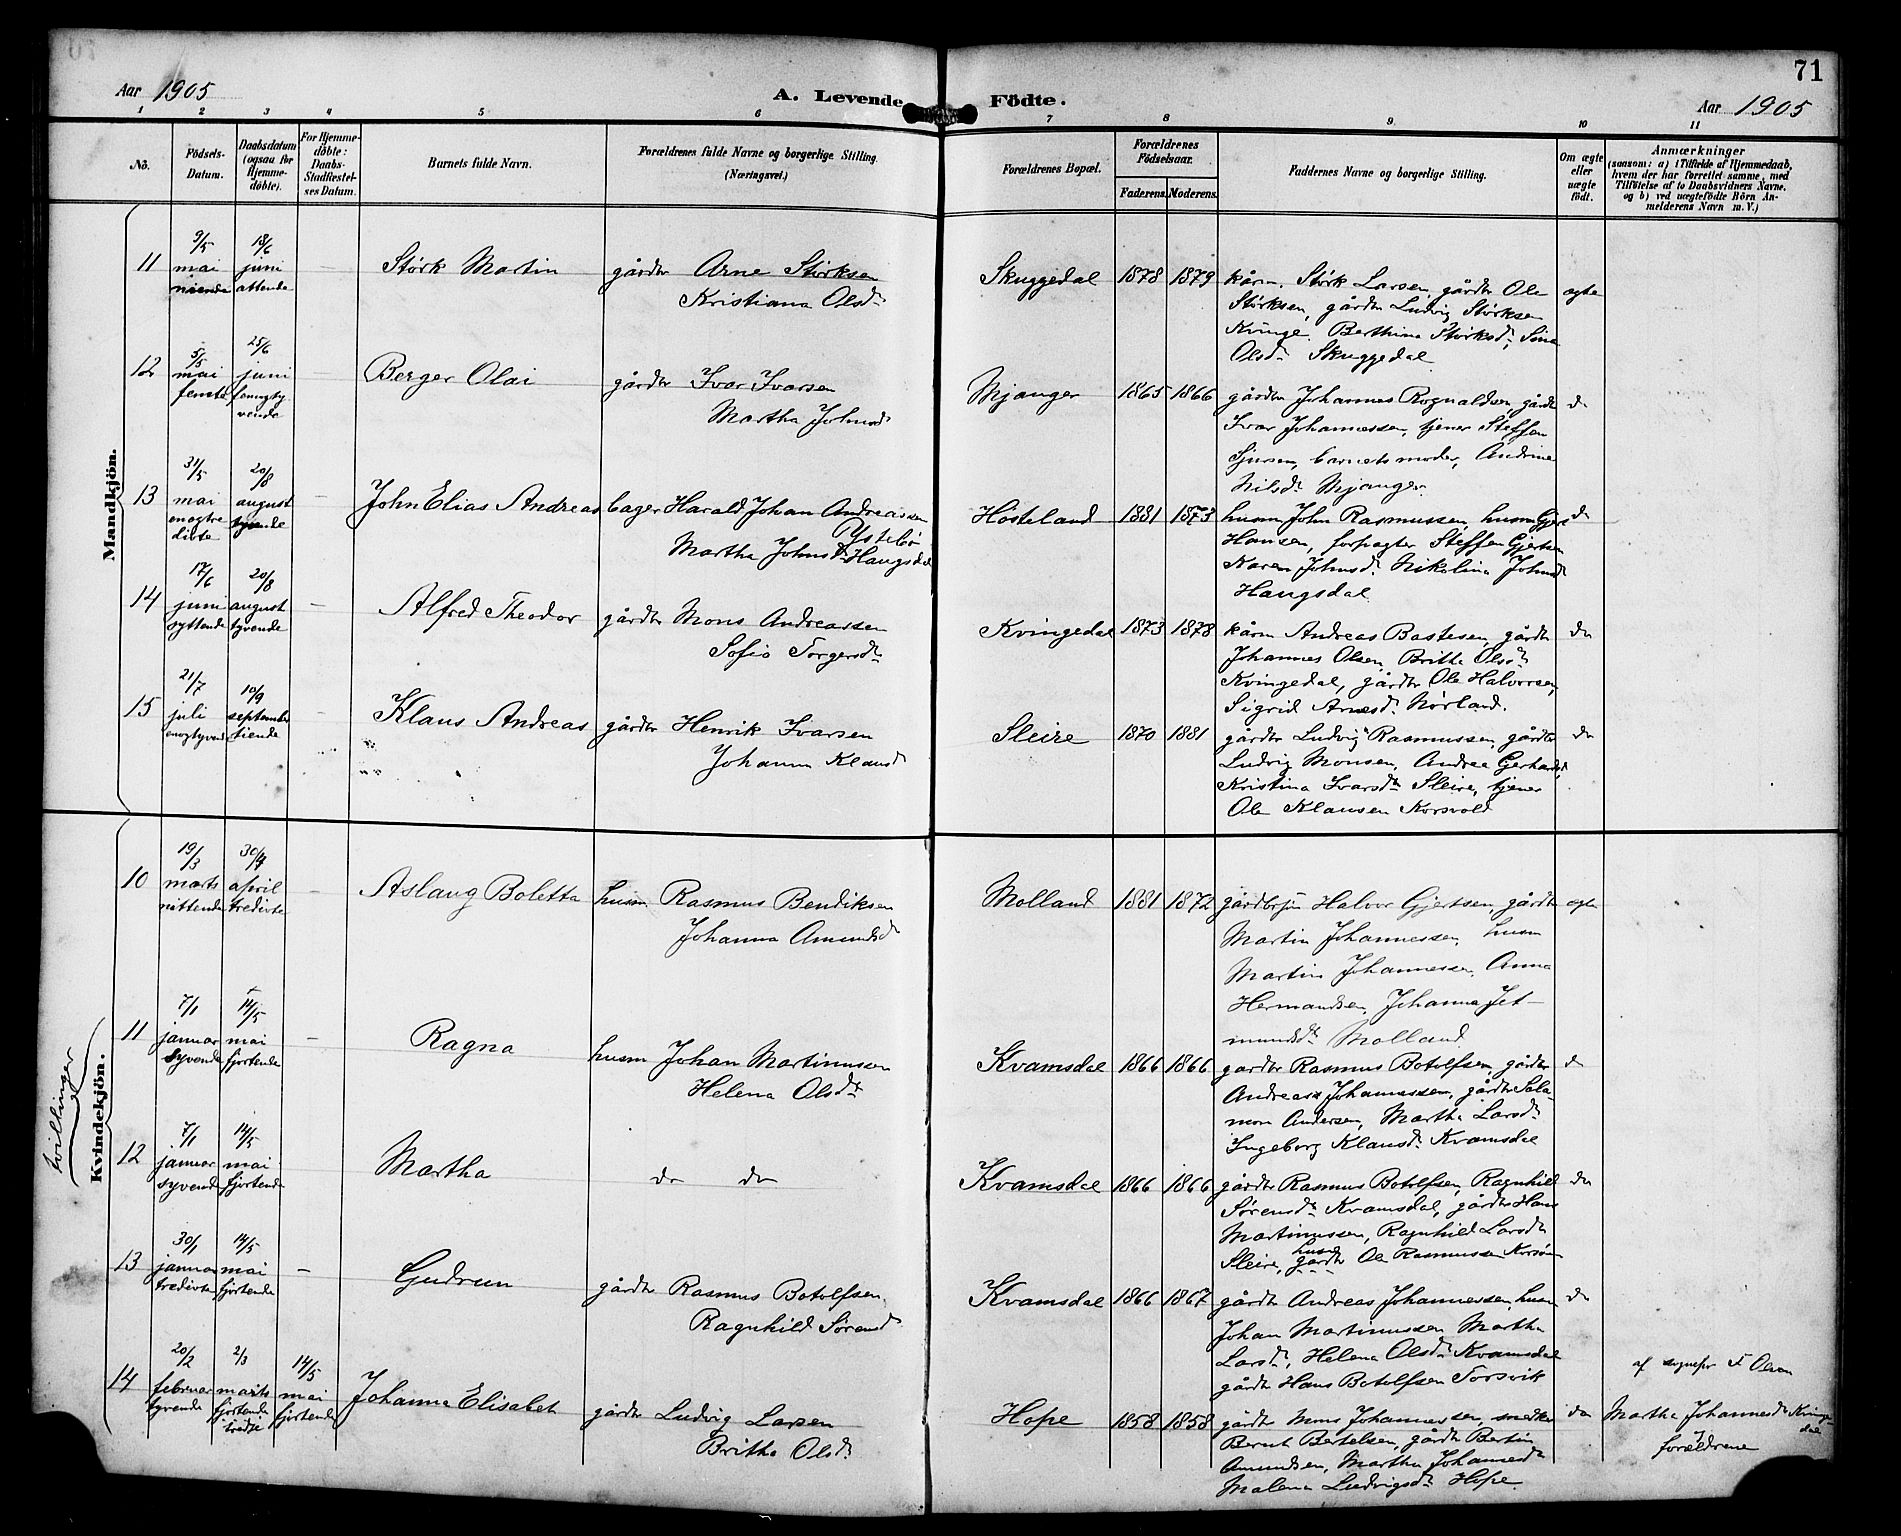 71
Aar 1905
A. Levende Födte.
Aar 1905
1 2 3 4 5 6 7 8 9 10 11
No.
Födsels-Datum.
Daabsdatum (ogsaa for Hjemme-döbte).
For Hjemme-döbte: Daabs-Stadfæstel-ses Datum.
Barnets fulde Navn.
Forældrenes fulde Navne og borgerlige Stilling. (Næringsvei.)
Forældrenes Bopæl.
Forældrenes Födselsaar.
Faderens. Moderens.
Faddernes Navne og borgerlige Stilling.
Om ægte eller uægte födt.
Anmærkninger
(saasom: a) i Tilfælde af Hjemmedaab, hvem der har forrettet samme, med Tilföielse af to Daabsvidners Navne. og b) ved uægtefödte Börn An-melderens Navn m. V.)
Mandkjön.
11
9/5 mai niende
18/6 juni attende
Størk Martin
gårdbr Arne Størksen
Kristiana Olsdr
Skuggedal 1878 1879
kårm. Størk Larsen, gårdbr Ole
Størksen, gårdbr Ludvig Størksen
Kvinge. Berthina Størksdr, Sina
Olsdr Skuggedal
ægte
12
5/5 mai femte
25/6 juni femogtyvende
Berger Olai
gårdbr Ivar Ivarsen
Martha Johnsdr
Mjanger 1865 1866
gårdbr Johannes Rognaldsen, gårdbr
Ivar Johannessen, tjener Steffen
Sjursen, barnets moder, Andrine
Nilsdr Mjanger.
do
13
31/5 mai enogtredivte
20/8 august tyvende
John Elias Andreas
bager Harald Johan Andreassen
Ystebø
Martha Johnsdr Haugsdal
Hosteland 1881 1873
husm John Rasmussen, husm Gjert
Hansen, forpagter Steffen Gjertsen
Karen Johnsdr. Nikolina Johnsdr
Haugsdal.
do
14
17/6 juni syttende
20/8 august tyvende
Alfred Theodor
gårdbr Mons Andreassen
Sofie Torgersdr
Kvingedal 1873 1878
kårm Andreas Bastesen, gårdbr
Johannes Olsen, Britha Olsdr
Kvingedal, gårdbr Ole Halvorsen,
Sigrid Arnesdr. Nørland.
do
15
21/7 juli enogtyvende
10/9 september tiende
Klaus Andreas
gårdbr Henrik Ivarsen
Johanna Klausdr
Sleire 1870 1881
gårdbr Ludvig Rasmussen, gårdbr
Ludvig Monsen, Andrea Gerhardsdr
Kristina Ivarsdr Sleire, tjener
Ole Klausen Korsvold
do
Kvindekjön.
10
19/3 marts nittende
30/4 april tredivte
Aslaug Boletta
husm Rasmus Bendiksen
Johanna Amundsdr
Molland 1881 1872
gårdbrsøn Halvor Gjertsen, gårdbr
Martin Johannessen, husm
Martin Johannessen, Anna
Hermandsen, Johanna Jet-
mundsdr Molland.
ægte
tvillinger
11
7/1 januar syvende
14/5 mai fjortende
Ragna
husm Johan Martinussen
Helena Olsdr
Kvamsdal 1866 1866
gardbr Rasmus Botolfsen, gårdbr
Andreas Johannessen, gårdbr Sala-
mon Andersen, Martha Larsdr
Ingeborg Klausdr Kvamsdal
do
12
7/1 januar syvende
14/5 mai fjortende
Martha
do do
Kvamsdal 1866 1866
gårdbr Rasmus Botolfsen, Ragnhild
Sørensdr Kvamsdal, gårdbr Hans
Martinussen, Ragnhild Larsdr
Sleire, husm gårdbr Ole Rasmussen
do
13
30/1 januar tredivte
14/5 mai fjortende
Gudrun
gårdbr Rasmus Botolfsen,
Ragnhild Sørensdr
Kvamsdal 1866 1867
gårdbr Andreas Johannessen, husm
Johan Martinussen Martha
Larsdr, Helena Olsdr Kvamsdal
gårdbr Hans Botolfsen Torsvik
do
14
20/2 februar tyvende
2/3 marts fjortende tredje
14/5 mai fjortende
Johanna Elisabet
gårdbr Ludvig Larsen
Britha Olsdr
Hope 1858 1858
gårdbr Mons Johannessen, smedker
Bernt Bertelsen, gårdbr Bertin
Amundsen, Martha Johannesdr
Malena Ludvigsdr Hope.
do
af sognepr F Olsen
Martha Johannesdr Kvingedal
forældrene